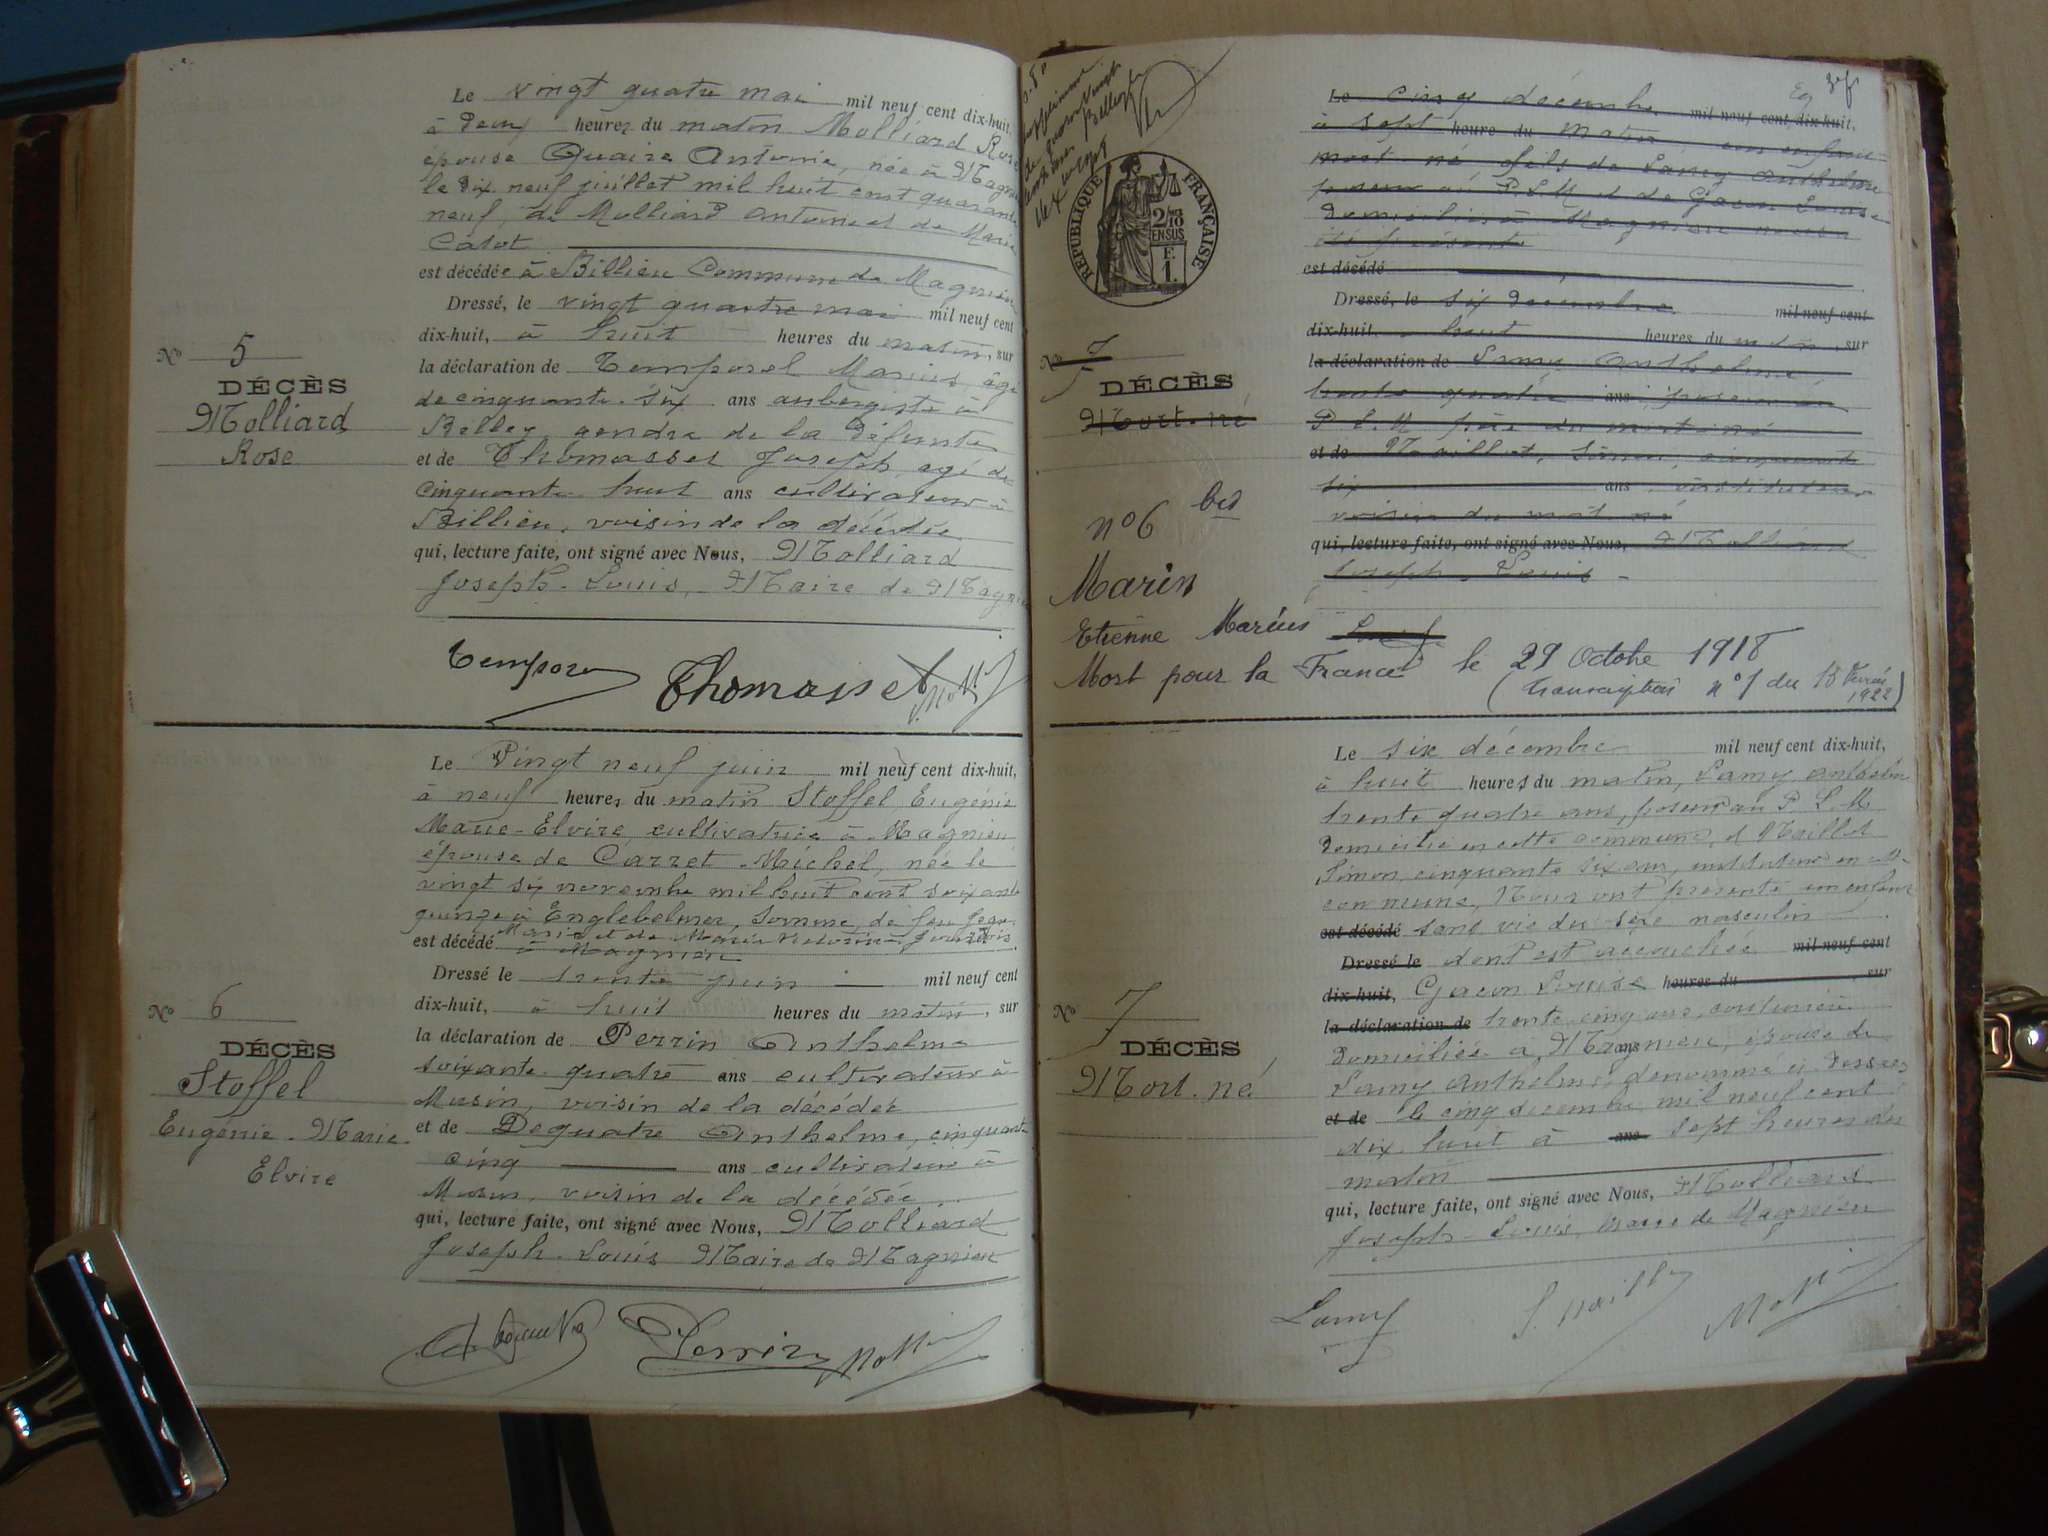 Le vingt quatre mai mil neuf cent dix-huit,
à deux heures du matin Molliard Rose
épouse Quaire Antoine, née à Magnieu
le dix neuf juillet mil huit cent quarante
neuf, de Molliard Antoine et de Marie
Catot
est décédée à Billieu Commune de Magnieu
Dressé, le vingt quatre mai mil neuf cent
dix-huit, à huit heures du matin, sur
la déclaration de Temporel Marius, âgé
de cinquante-six ans aubergiste à
Belley, gendre de la défunte
et de Thomasset Joseph, agé de
cinquante-huit ans cultivateur à
Billieu, voisin de la décédée
qui, lecture faite, ont signé avec Nous, Molliard
Joseph-Louis, Maire de Magnieu
No 5
DÉCÈS
Molliard
Rose
Thomasset
Le Vingt neuf juin mil neuf cent dix-huit,
à neuf heures du matin Stoffel Eugénie
Marie-Elvire, cultivatrice à Magnieu
épouse de Carret Michel, née le
vingt six novembre mil huit cent soixante
quinze à Englebelmer, Somme, de feu Jean
Marie et de Marie Victorine
est décédé à Magnieu
Dressé le trente juin mil neuf cent
dix-huit, à huit heures du matin, sur
la déclaration de Perrin Anthelme
soixante-quatre ans cultivateur à
Musin, voisin de la décédée
et de Dequatre Anthelme, cinquante
cinq ans cultivateur à
Musin, voisin de la décédée
qui, lecture faite, ont signé avec Nous, Molliard
Joseph-Louis Maire de Magnieu
No 6
DÉCÈS
Stoffel
Eugénie-Marie-
Elvire
Perrin
RÉPUBLIQUE FRANÇAISE
2/10 EN SUS
F. 1.
Le cinq décembre mil neuf cent dix-huit,
à sept heure du matin, un enfant
mort-né fils de Lamy Anthelme
poseur au P.L.M et de Gacon Louise
domiciliés à Magnieu nous a
été présenté
est décédé
Dressé, le six décembre mil neuf cent
dix-huit, à huit heures du matin, sur
la déclaration de Lamy Anthelme,
trente quatre ans poseur au
P.L.M père du mort-né
et de Maillet, Simon, cinquante
six ans instituteur
voisin du mort né
qui, lecture faite, ont signé avec Nous, Molliard
Joseph-Louis
No 7
DÉCÈS
Mort-né
no 6 bis
Marin
Etienne Marius
Mort pour la France le 29 Octobre 1918
(transcription no 1 du 15 Février
1922)
Le six décembre mil neuf cent dix-huit,
à huit heures du matin, Lamy Anthelme
trente quatre ans, poseur au P.L.M
domicilié en cette commune, et Maillet
Simon cinquante six ans, instituteur en
commune, Nous ont présenté un enfant
est décédé sans vie du sexe masculin
Dressé le dont est accouchée mil neuf cent
dix-huit, Gacon Louise heures du , sur
la déclaration de trente cinq ans, couturière
domiciliée à Magnieu, épouse de ans
Lamy Anthelme, dénommé ci dessus
et de le cinq décembre mil neuf cent
dix huit à ans sept heures du
matin
qui, lecture faite, ont signé avec Nous, Molliard
Joseph-Louis, Maire de Magnieu
No 7
DÉCÈS
Mort-né
Lamy